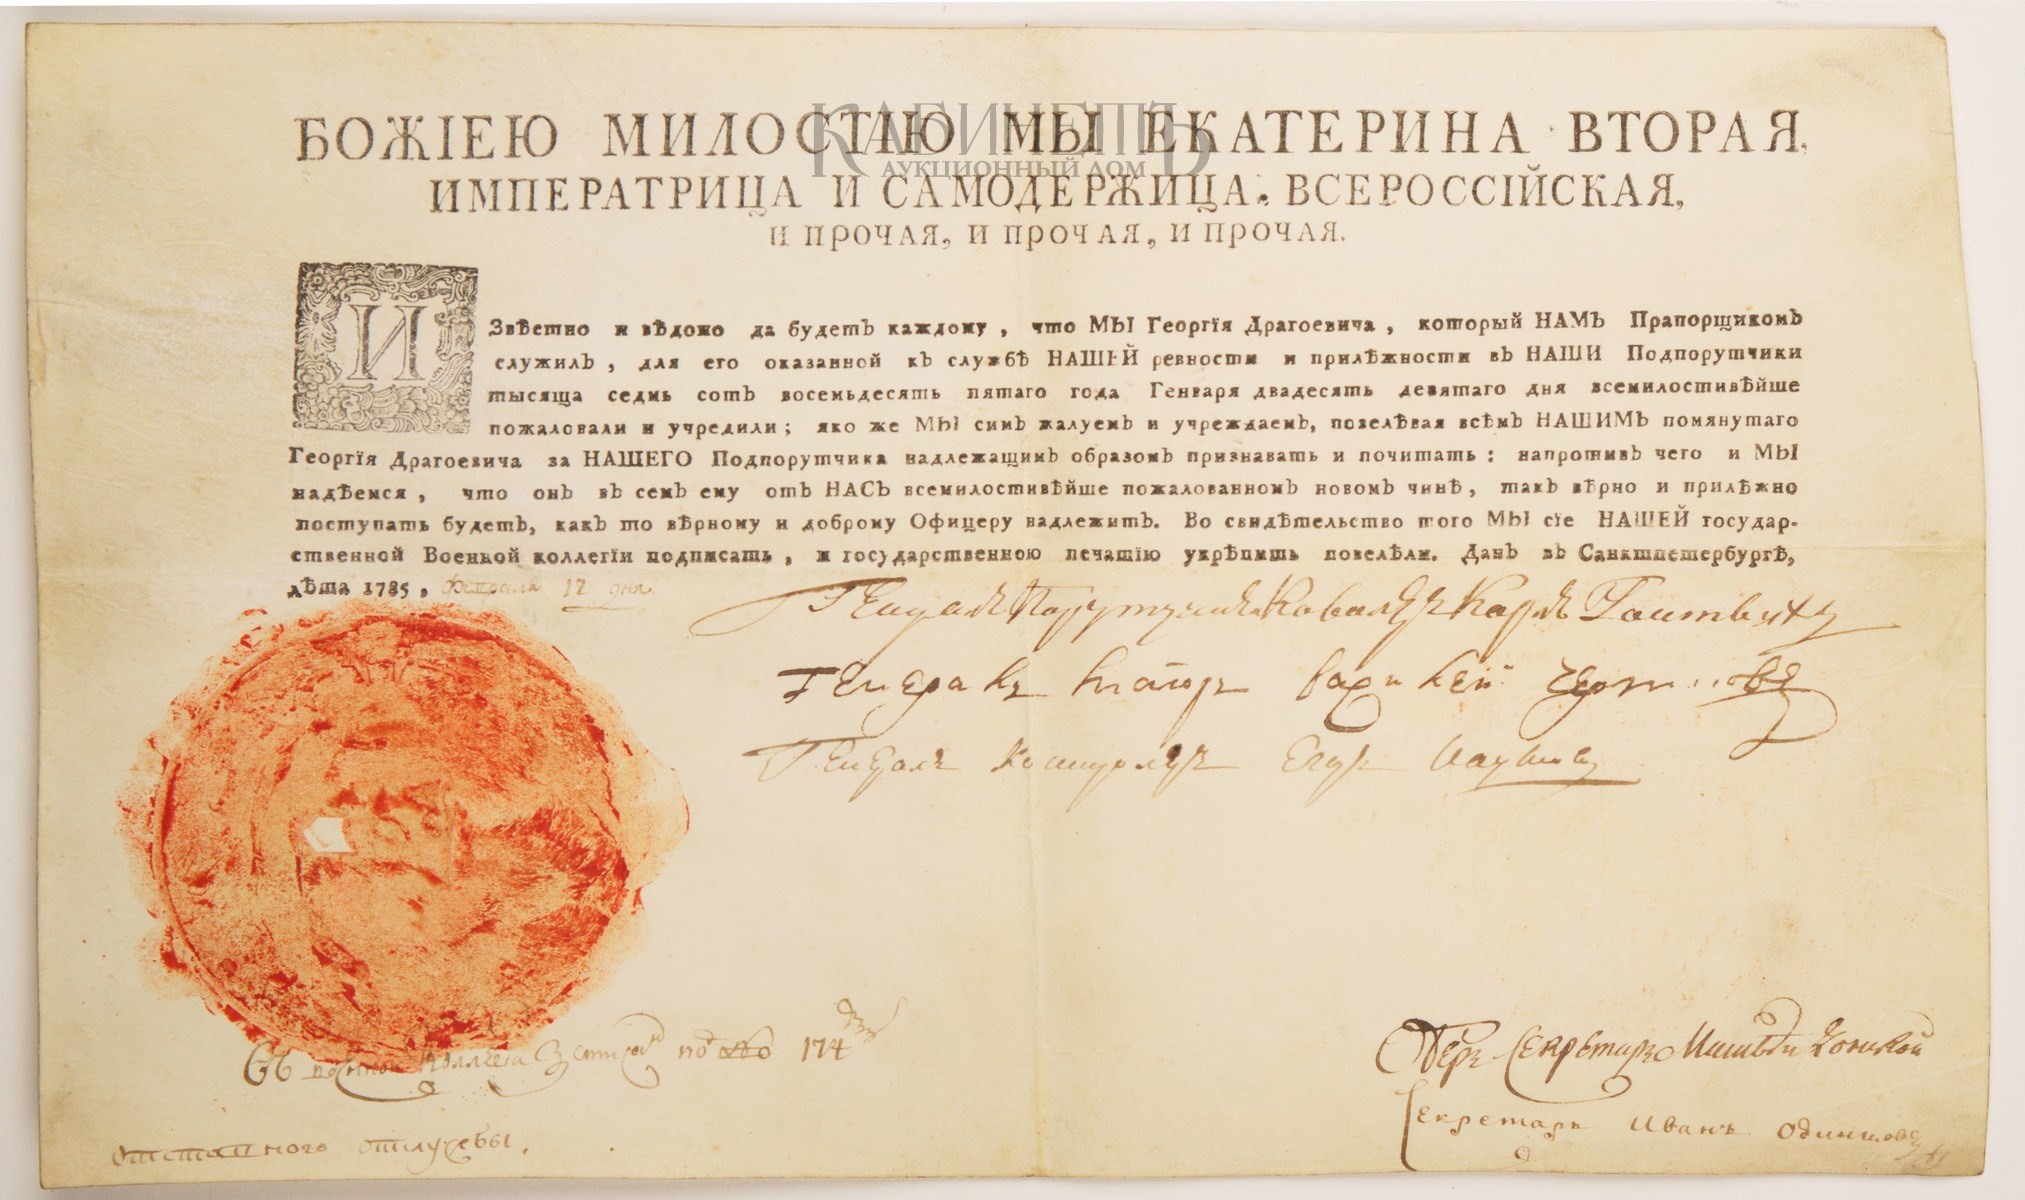 БОЖІЕЮ МИЛОСТІЮ МЫ ЕКАТЕРИНА ВТОРАЯ,
КАБИНЕТЪ
АУКЦИОННЫЙ ДОМ
ИМПЕРАТРИЦА И САМОДЕРЖИЦА, ВСЕРОССІЙСКАЯ,
И ПРОЧАЯ, И ПРОЧАЯ, И ПРОЧАЯ.
ИЗвѣстно и вѣдомо да будетъ каждому, что МЫ Георгїя Драгоевича, который НАМЪ Прапорщикомъ
служилъ, для его оказанной къ службѣ НАШЕЙ ревности и прилѣжности въ НАШИ Подпорутчики
тысяща седмь сотъ восемьдесять пятаго года Генваря двадесять девятаго дня всемилостивѣйше
пожаловали и учредили; яко же МЫ симъ жалуемъ и учреждаемъ, повелѣвая всѣмъ НАШИМЪ помянутаго
Георгїя Драгоевича за НАШЕГО Подпорутчика надлежащимъ образомъ признавать и почитать: напротивъ чего и МЫ
надѣемся, что онъ въ семъ ему отъ НАСЪ всемилостивѣйше пожалованномъ новомъ чинѣ, такъ вѣрно и прилѣжно
поступать будетъ, какъ то вѣрному и доброму Офицеру надлежитъ. Во свидѣтельство того МЫ сїе НАШЕЙ государ-
ственной Военной коллегїи подписать, и государственною печатїю укрѣпить повелѣли. Данъ въ Санктпетербургѣ,
лѣта 1785, февраля 12 дня
Генерал
Генерал маіоръ
Генерал Егор
под № 174
Обер Секретарь
Секретарь Иванъ Одинцовъ